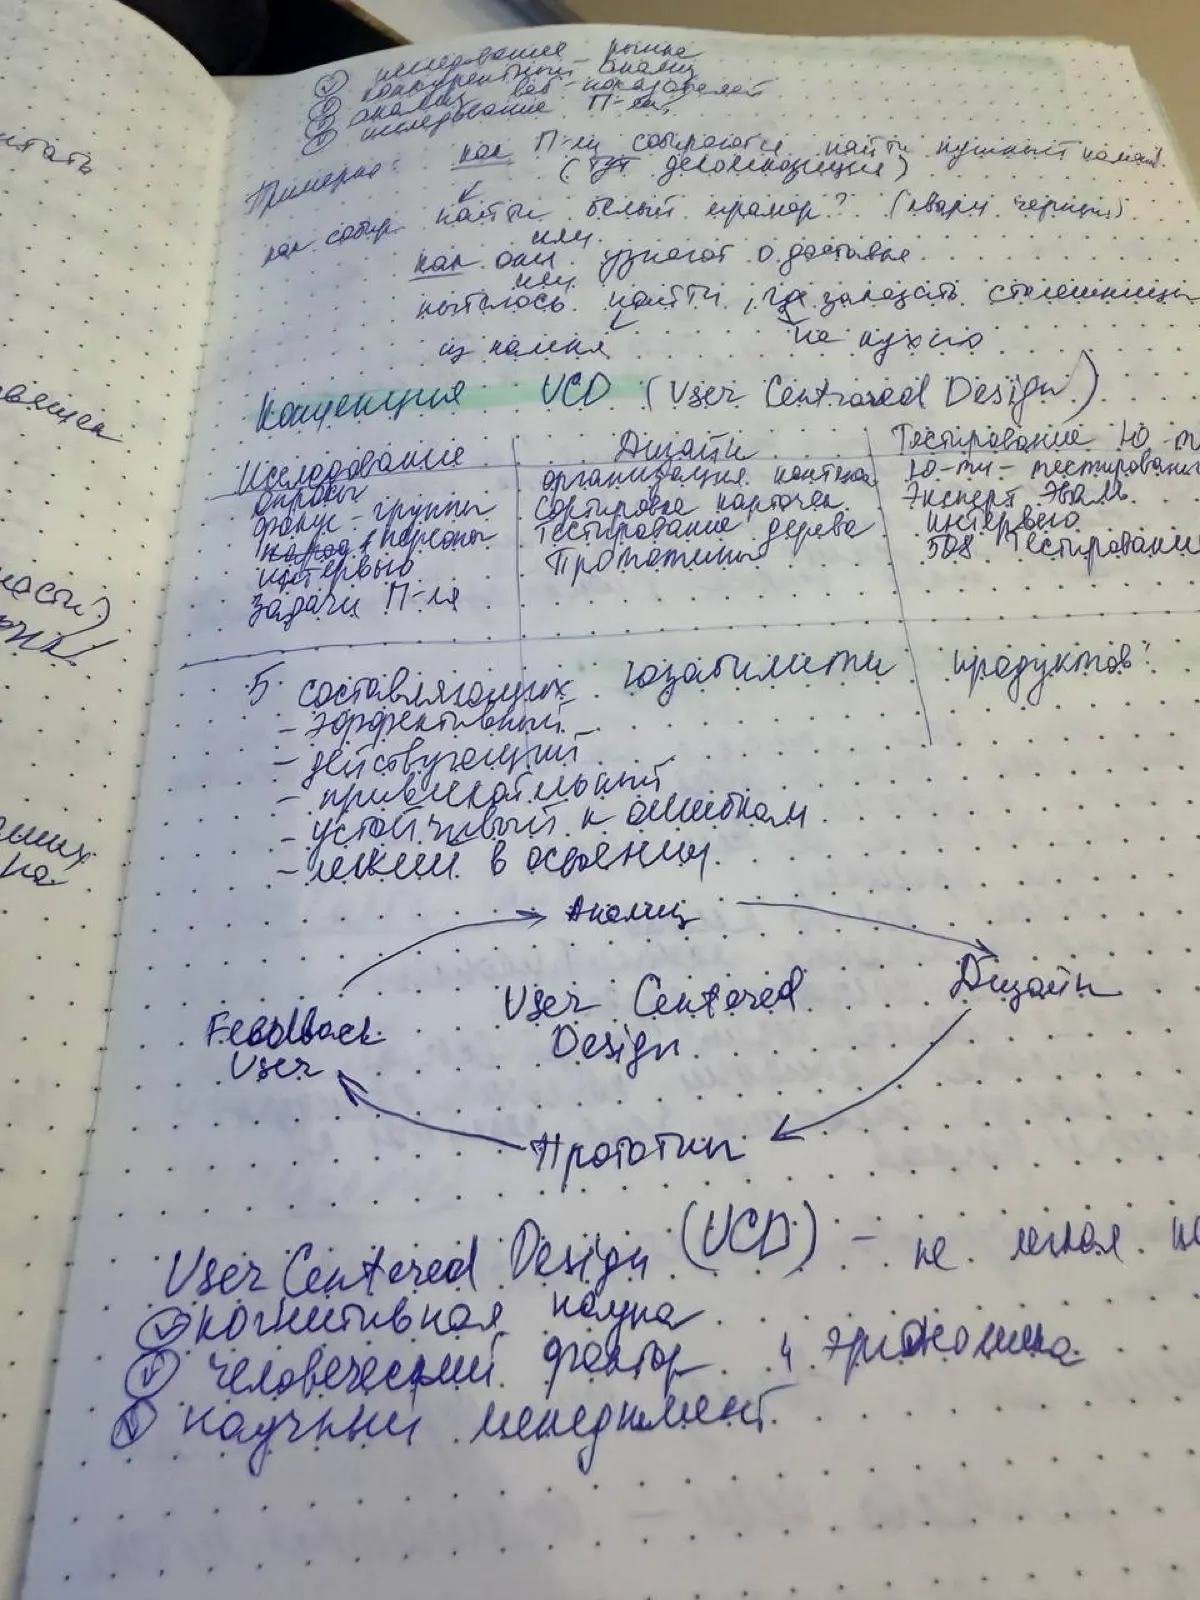 исследование рынка
конкурентный анализ
анализ веб-показателей
исследование П-ля
Примерно: как П-ли собираются найти нужный камень
(тут декомпозиция)
как собир. найти белый мрамор? (кварц, черный)
или
как они узнают о доставке
или
пыталось найти, где заказать столешницы
из камня
на кухню
Концепция UCD (User Centrared Design)
Исследование
опросы
фокус-группы
персоны
интервью
задачи П-ля
Дизайн
организация контента
сортировка карточек
тестирование дерева
Прототипы
Тестирование Ю-ти
Ю-ти-тестирование
Эксперт. Эваль.
интервью
508 Тестирование
5 составляющих юзабилити продуктов:
- эффективный
- действующий
- привлекательный
- устойчивый к ошибкам
- легкий в освоении
Анализ
Дизайн
User Centered
Design
Feedback
User
Прототип
User Centered Design (UCD) - не легкая
когнитивная наука
человеческий фактор и эргономика
научный менеджмент
итать
ности)